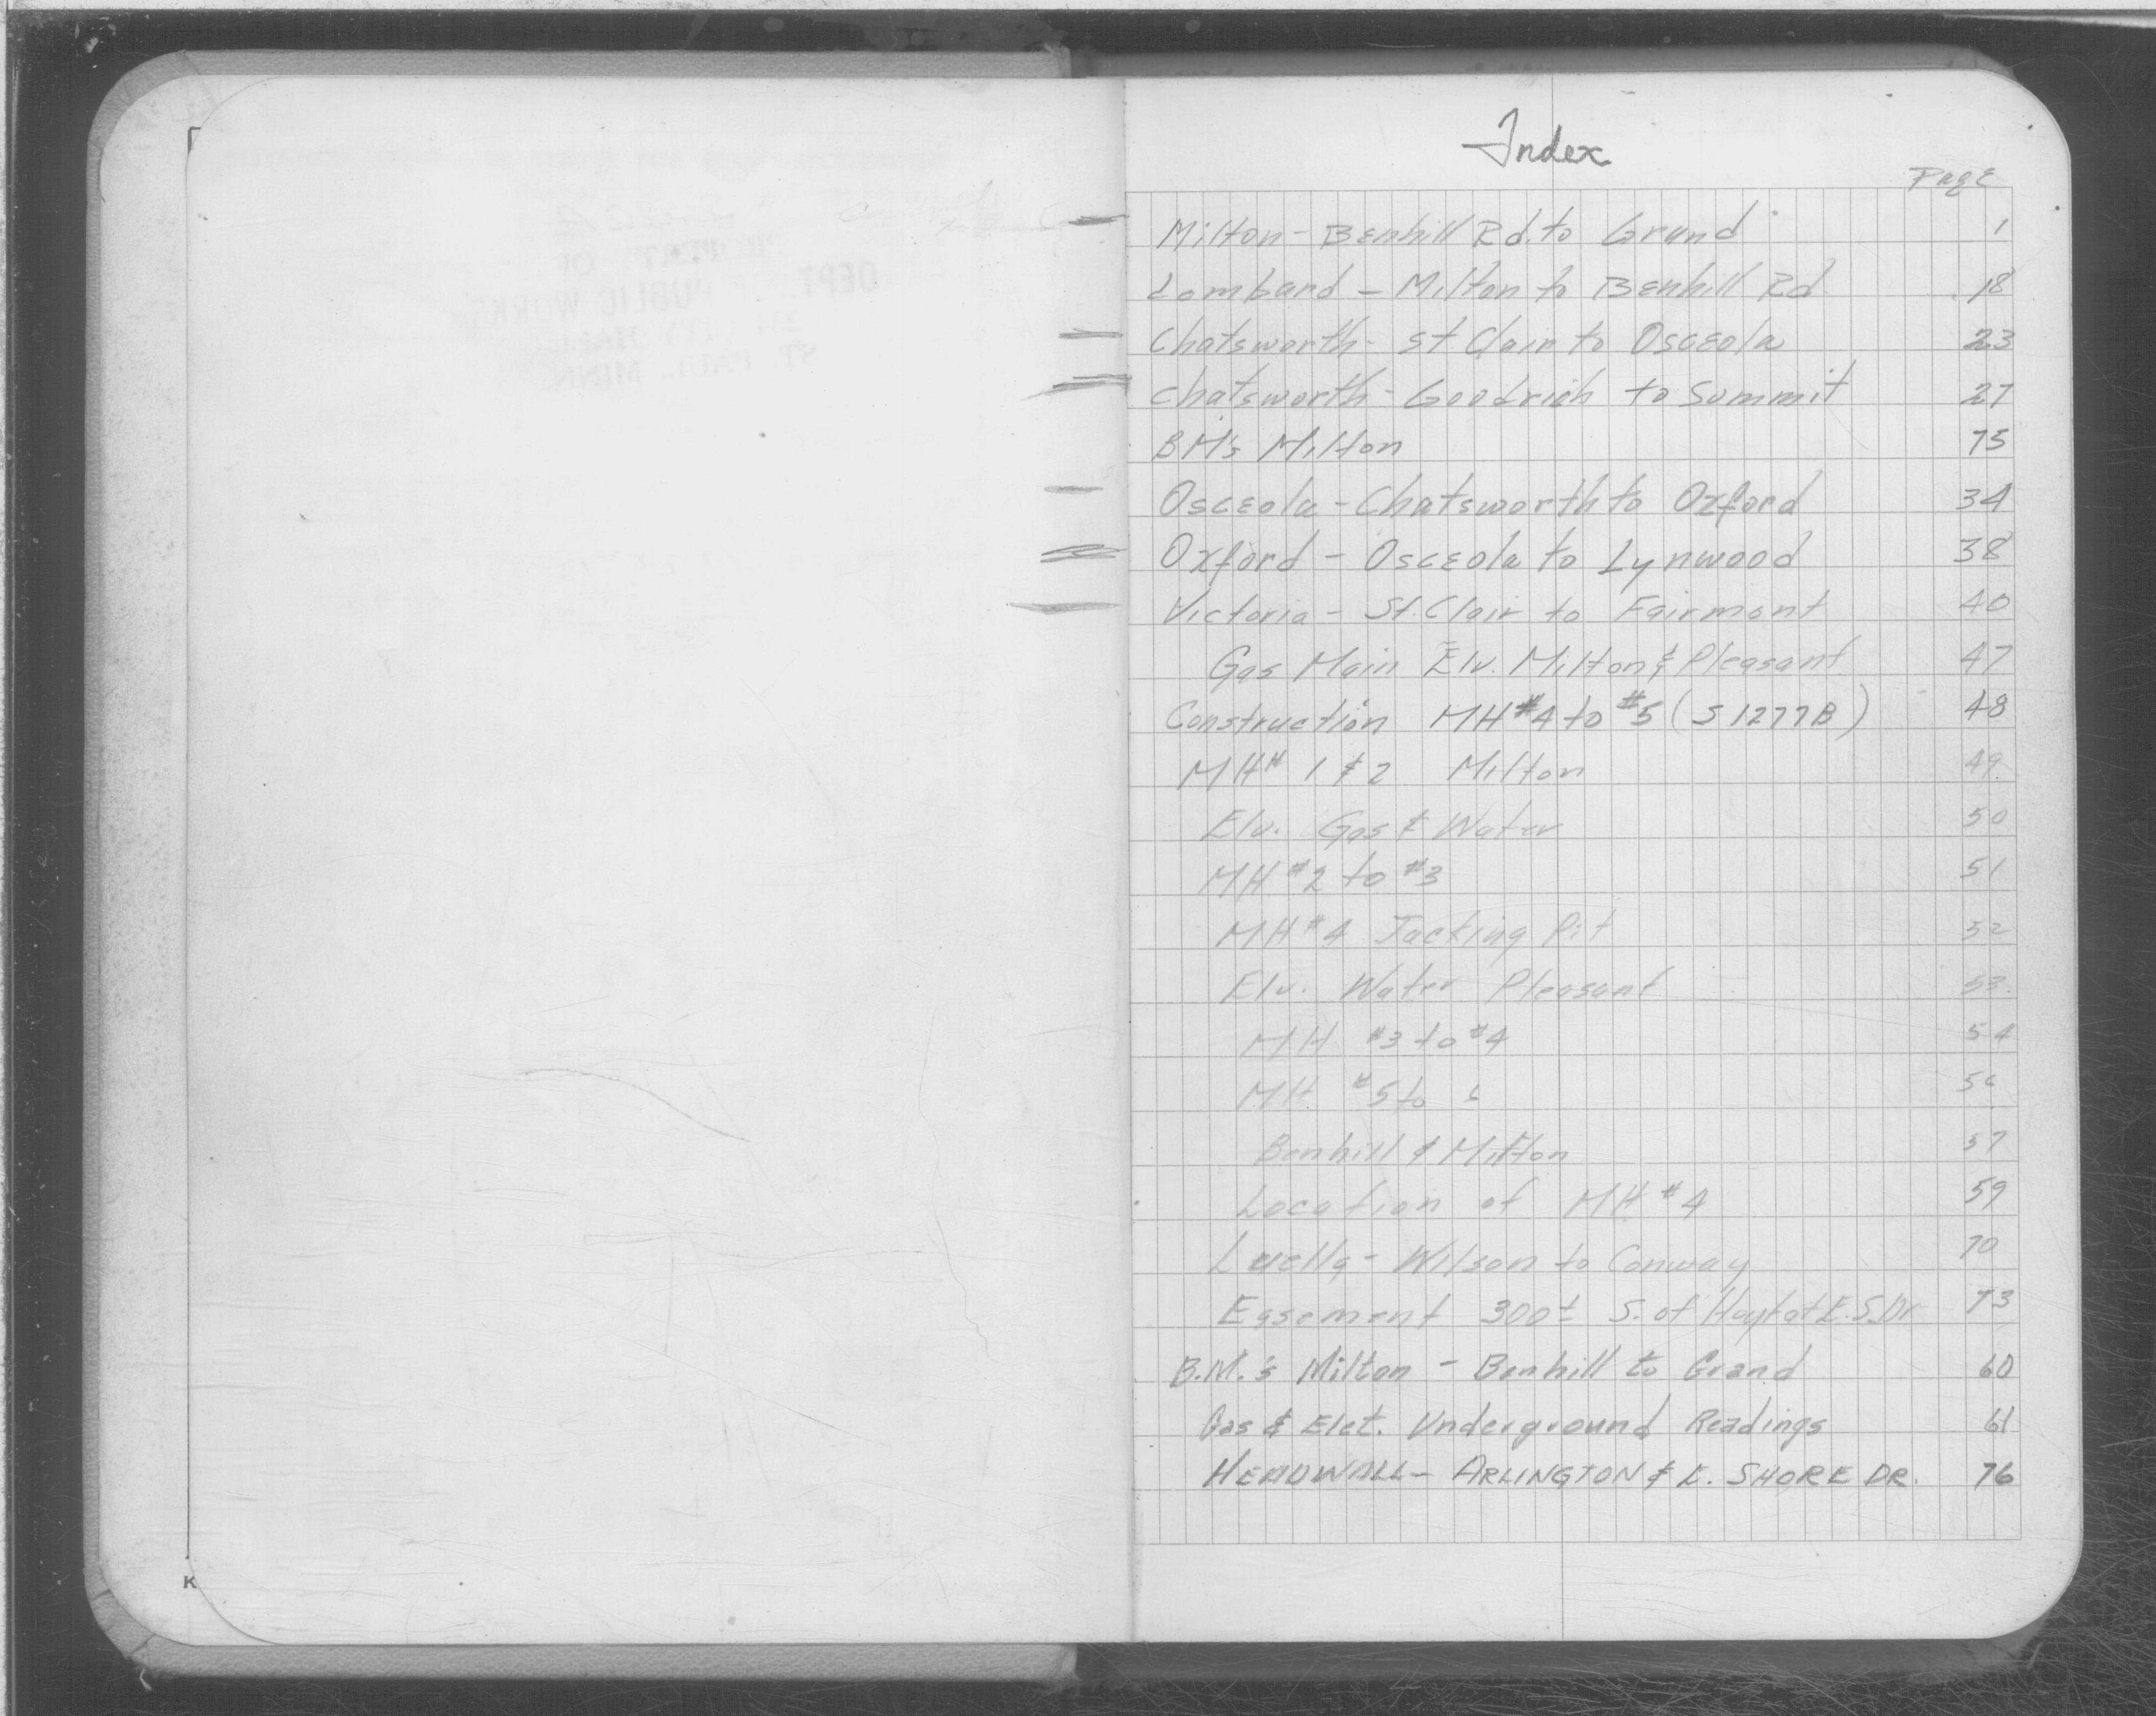 Index
Page
Milton - Benhill Rd. to Grand 1
Lombard - Milton to Benhill Rd. 18
Chatsworth - St Clair to Osceola 23
Chatsworth - Goodrich to Summit 27
BM's Milton 75
Osceola - Chatsworth to Oxford 34
Oxford - Osceola to Lynwood 38
Victoria - St. Clair to Fairmont 40
Gas Main Elv. Milton & Pleasant 47
Construction MH #4 to #5 (S 1277B) 48
MH# 1 & 2 Milton 49
Elv. Gas & Water 50
MH #2 to #3 51
MH #4 Jacking Pit 52
Elv. Water Pleasant 53
MH #3 to #4 54
MH #5 to 6 56
Benhill & Milton 57
Location of MH #4 59
Luella - Wilson to Conway 70
Easement 300± S. of Hoyt at E.S.Dr 73
B.M.'s Milton - Benhill to Grand 60
Gas & Elct. Underground Readings 61
HEADWALL - ARLINGTON & E. SHORE DR. 76
K
DEPT. PUBLIC WORKS
ST. PAUL, MINN.